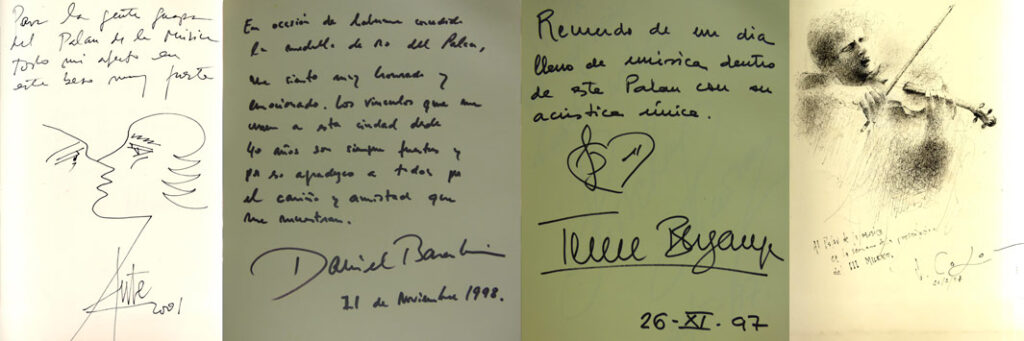 Para la gente guapa
del Palau de la Música
todo mi afecto en
este beso muy fuerte
Aute
2001
En occasión de haberme concedido
la medalla de oro del Palau,
me siento muy honrado y
emocionado. Los vínculos que me
unen a esta ciudad desde
40 años son siempre fuertes y
por eso agradezco a todos por
el cariño y amistad que
me muestran.
Daniel Barenboim
21 de Noviembre 1998.
Recuerdo de un dia
lleno de música dentro
de este Palau con su
acústica única.
Teresa Berganza
26-XI-97
Al Palau de la Música
en la semana de la
de III Musics,